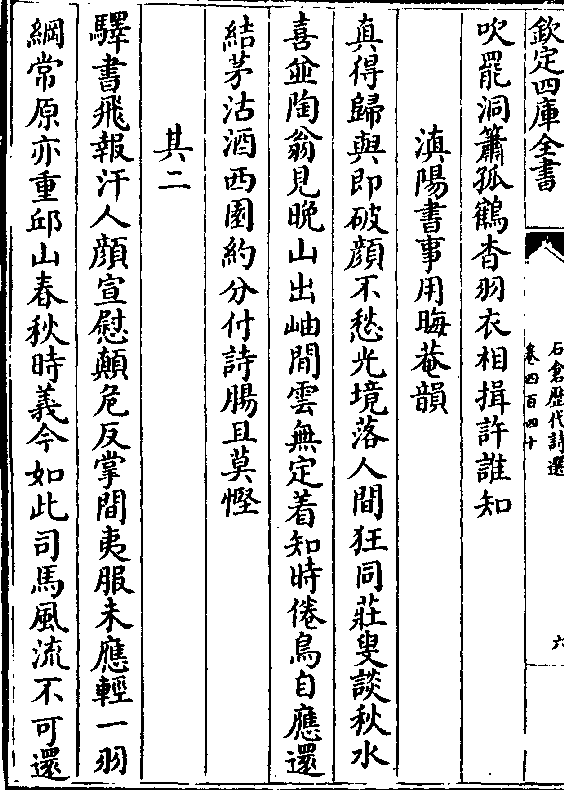 欽定四庫全書
石倉歷代詩選
卷四百四十
六
吹罷洞簫孤鶴杳羽衣相揖許誰知
滇陽書事用晦菴韻
真得歸與即破顔不愁光境落人間狂同莊叟談秋水
喜並陶翁見晚山出岫閒雲無定着知時倦鳥自應還
結茅沽酒西園約分付詩腸且莫慳
其二
驛書飛報汗人顔宣慰顛危反掌間夷服未應輕一羽
綱常原亦重邱山春秋時義今如此司馬風流不可還